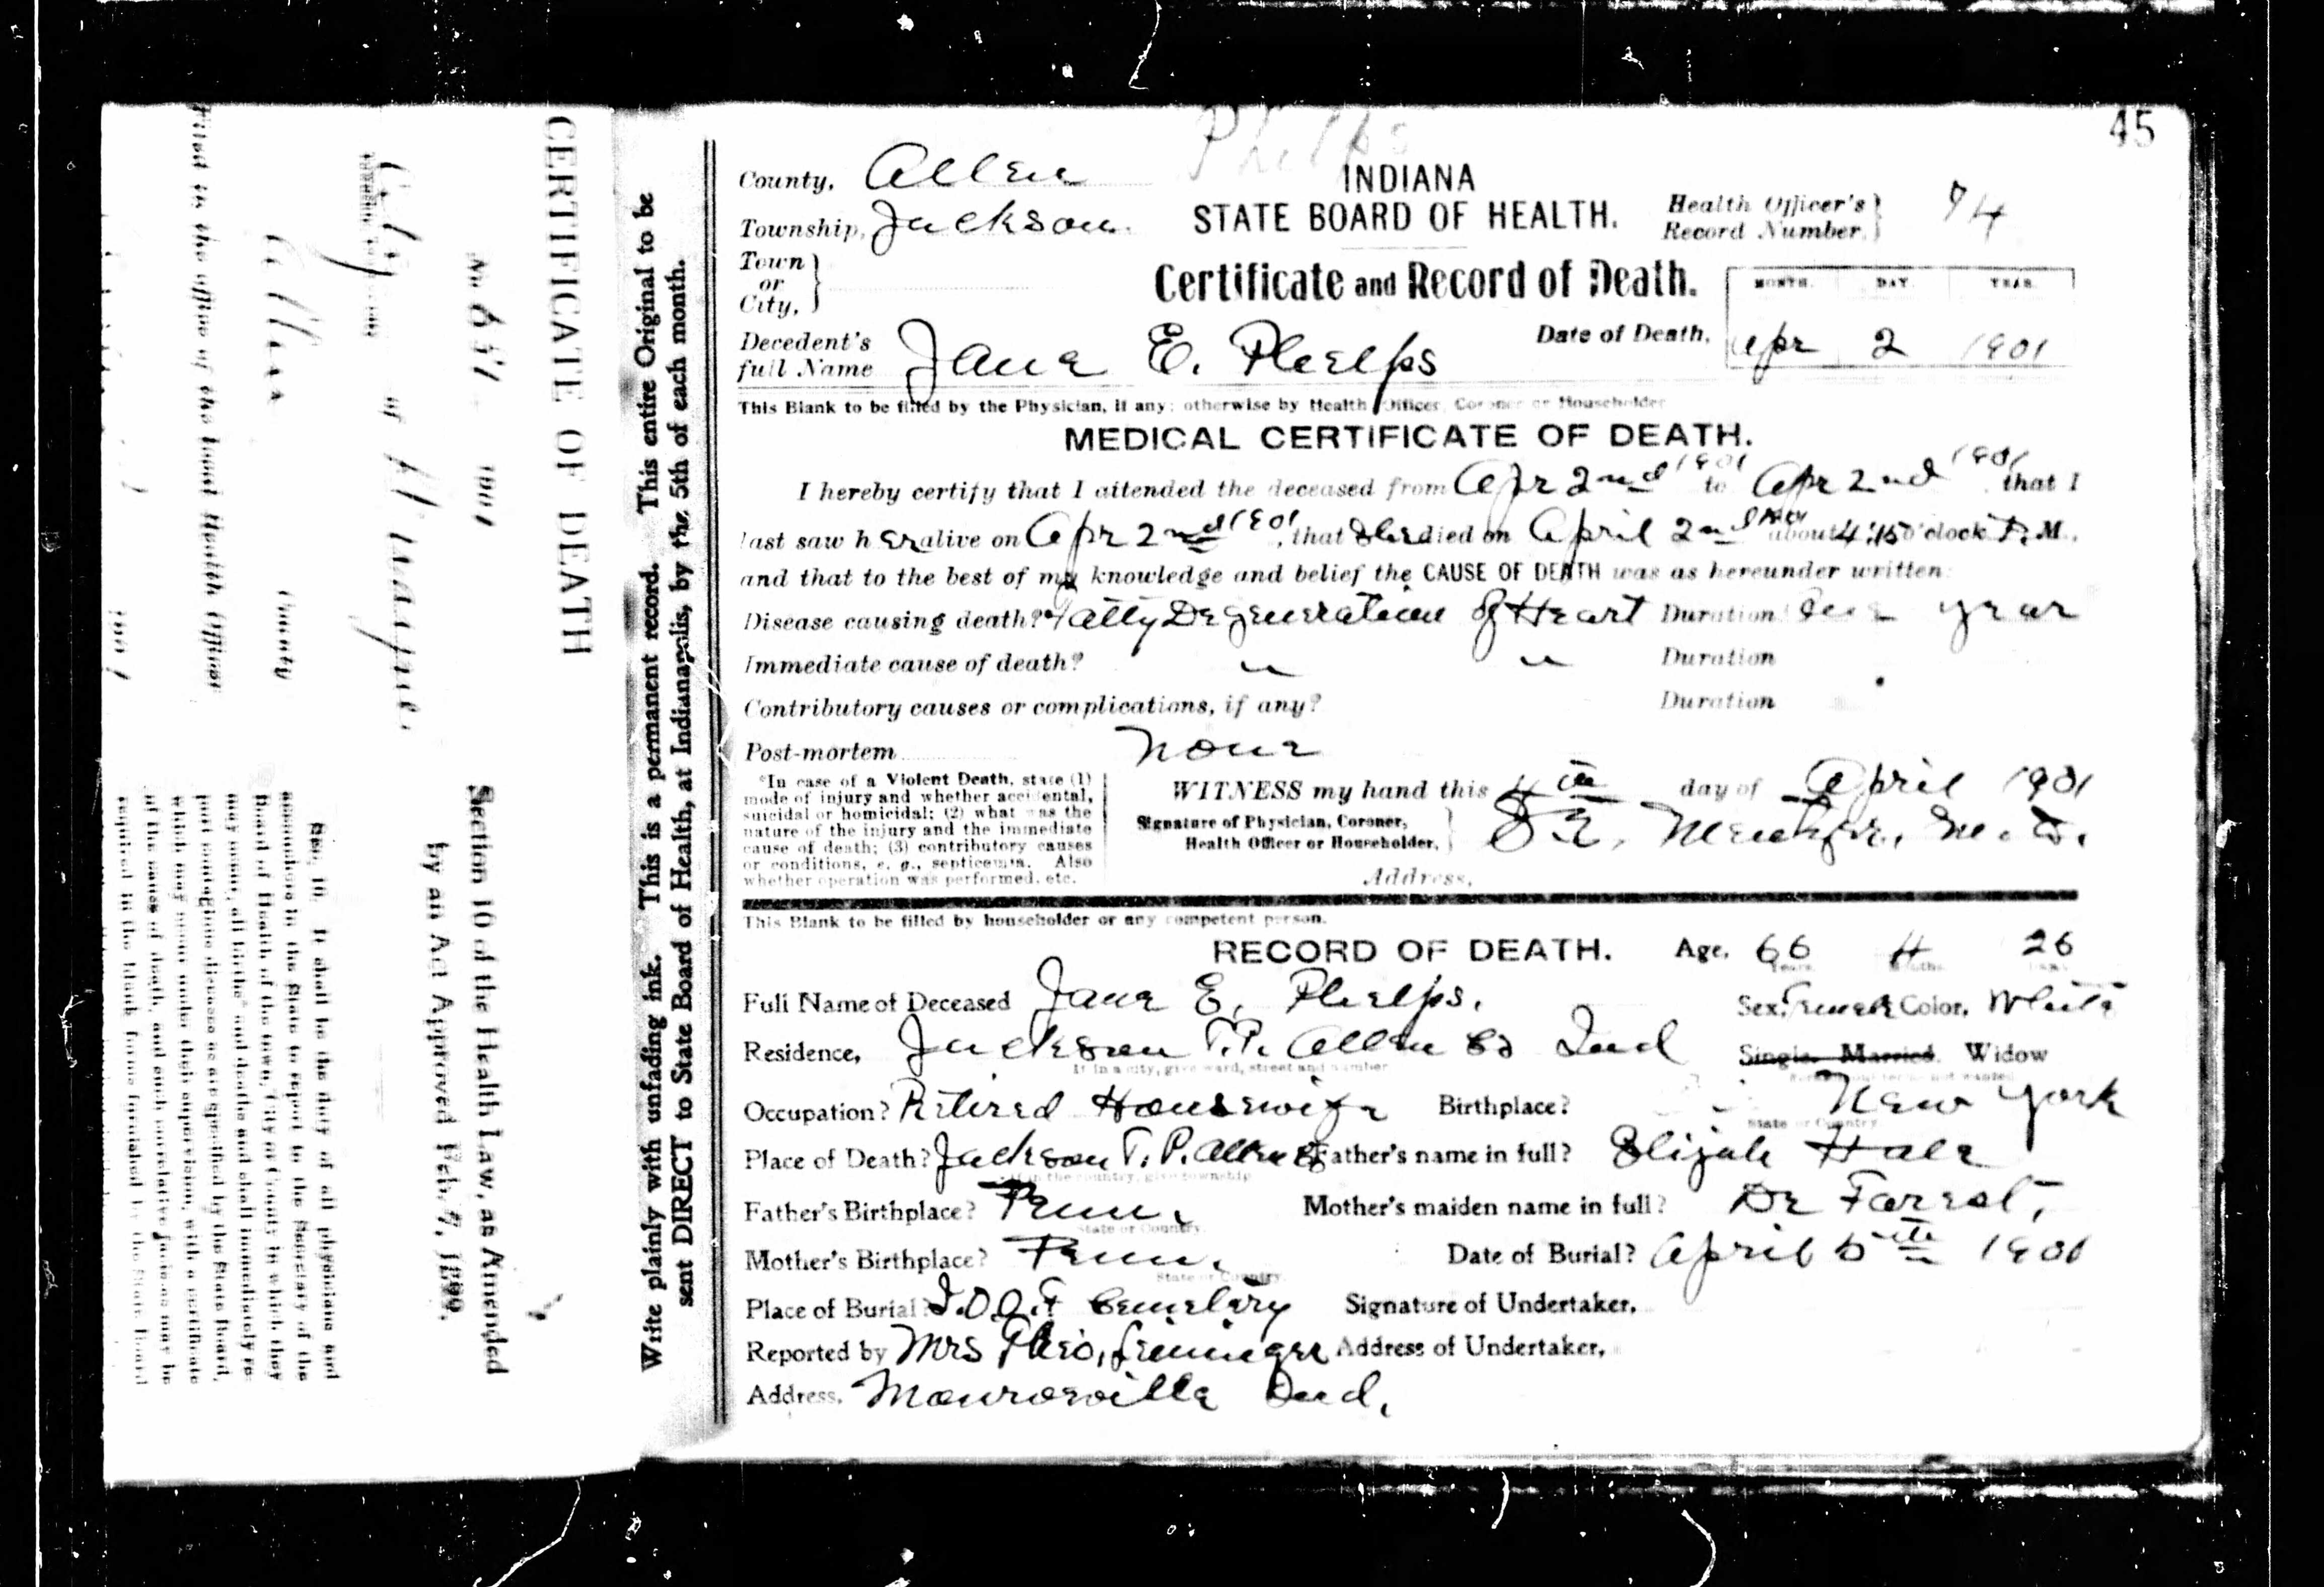 45
Phelps
County, Allen
INDIANA
Township, Jackson.
STATE BOARD OF HEALTH.
Health Officer's Record Number, 94
Town or City,
Certificate and Record of Death.
MONTH. DAY. YEAR.
Decedent's full Name Jane E. Phelps
Date of Death, Apr 2 1901
This Blank to be filled by the Physician, if any; otherwise by Health Officer, Coroner or Householder
MEDICAL CERTIFICATE OF DEATH.
I hereby certify that I attended the deceased from Apr 2nd 1901 to Apr 2nd 1901, that I
last saw her alive on Apr 2nd 1901, that she died on April 2nd about 4:15 o'clock P. M.,
and that to the best of my knowledge and belief the CAUSE OF DEATH was as hereunder written:
Disease causing death?* Fatty Degeneration of Heart Duration One year
Immediate cause of death? " " Duration
Contributory causes or complications, if any? Duration
Post-mortem None
*In case of a Violent Death, state (1)
mode of injury and whether accidental,
suicidal or homicidal; (2) what was the
nature of the injury and the immediate
cause of death; (3) contributory causes
or conditions, e. g., septicemia. Also
whether operation was performed, etc.
WITNESS my hand this 4th day of April 1901
Signature of Physician, Coroner,
Health Officer or Householder, M. D.
Address,
This Blank to be filled by householder or any competent person.
RECORD OF DEATH. Age, 66 4 26
Years. Months. Days.
Full Name of Deceased Jane E. Phelps. Sex, Female Color, White
Residence, Jackson T.P. Allen Co Ind Single. Married. Widow
If in a city, give ward, street and number
Occupation? Retired Housewife Birthplace? New York
State or Country
Place of Death? Jackson T. P. Allen Co Father's name in full? Elijah Hale
If in the country, give township
Father's Birthplace? Penn. Mother's maiden name in full? De Forest,
State or Country.
Mother's Birthplace? Penn. Date of Burial? April 5th 1901
State or Country.
Place of Burial? I.O.O.F Cemetery Signature of Undertaker,
Reported by Mrs Theo, Leininger Address of Undertaker,
Address, Monroeville Ind,
Write plainly with unfading ink. This is a permanent record. This entire Original to be
sent DIRECT to State Board of Health, at Indianapolis, by the 5th of each month.
CERTIFICATE OF DEATH
No. 1901
City of Ft Wayne.
Allen County
Filed in the office of the local Health Officer
1901
Section 10 of the Health Law, as Amended
by an Act Approved Feb. 7, 1899.
Sec. 10. It shall be the duty of all physicians and